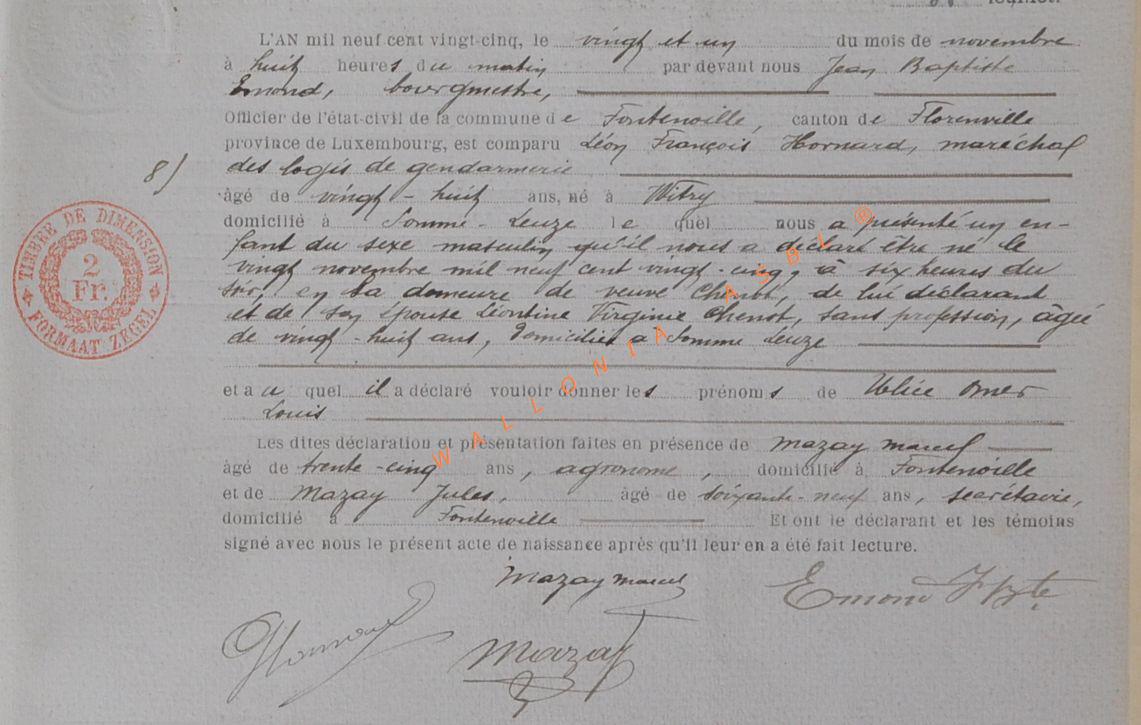 feuillet.
L'AN mil neuf cent vingt-cinq, le vingt et un du mois de novembre
à huit heures du matin par devant nous Jean Baptiste
Emond, bourgmestre,
Officier de l'état-civil de la commune de Fontenoille, canton de Florenville
province de Luxembourg, est comparu Léon François Hornard, maréchal
des logis de gendarmerie
8)
âgé de vingt-huit ans, né à Witry
domicilié à Somme-Leuze lequel nous a présenté un en-
fant du sexe masculin qu'il nous a déclaré être né le
vingt novembre mil neuf cent vingt-cinq, à six heures du
soir, en la demeure de veuve Chenot, de lui déclarant
et de son épouse Léontine Virginie Chenot, sans profession, âgée
de vingt-huit ans, domiciliée à Somme Leuze
et auquel il a déclaré vouloir donner les prénoms de Omer
Louis
Les dites déclaration et présentation faites en présence de Mazay Marcel
âgé de trente-cinq ans, agronome, domicilié à Fontenoille
et de Mazay Jules, âgé de soixante-neuf ans, secrétaire,
domicilié à Fontenoille Et ont le déclarant et les témoins
signé avec nous le présent acte de naissance après qu'il leur en a été fait lecture.
Mazay Marcel
Emond JBte
Hornard
Mazay
TIMBRE DE DIMENSION
2
Fr.
FORMAAT ZEGEL
WALLONIA ASBL ®